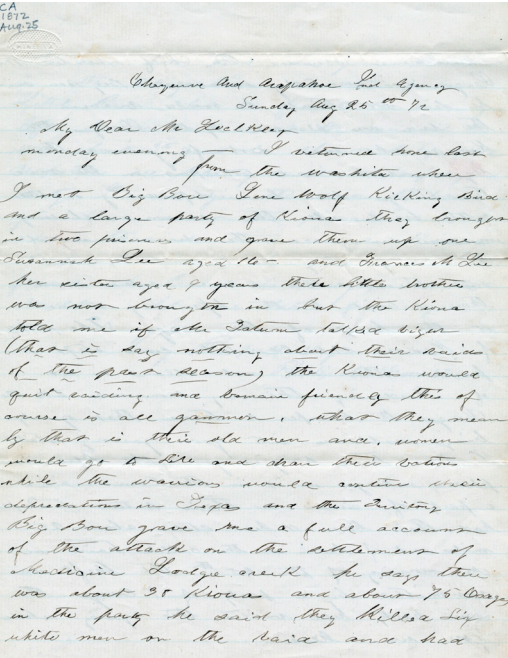 CA
1872
Aug. 25
Cheyenne and Arapahoe Ind Agency
Sunday Aug 25th 72
My Dear Mr
monday evening – I returned home last
from the washita where
I met Big Bow Lone Wolf Kicking Bird
and a large party of Kiowa they brought
in two prisoners and gave them up one
Susannah Lee aged 16 – and Frances M Lee
her sister aged 9 years there little brother
was not brought in but the Kiowa
told me if Mr Tatum talked right
(that is say nothing about their raids
of the past season) the Kiowas would
quit raiding and remain friendly this of
course is all gammon, what they mean
by that is their old men and women
would go to Sill and draw their rations
while the warriors would continue their
depredations in Texas and the Territory
Big Bow gave me a full account
of the attack on the settlement of
Medicine Lodge creek he says there
was about 35 Kiowas and about 75 Osages
in the party he said they Killed Six
white men on the raid and had